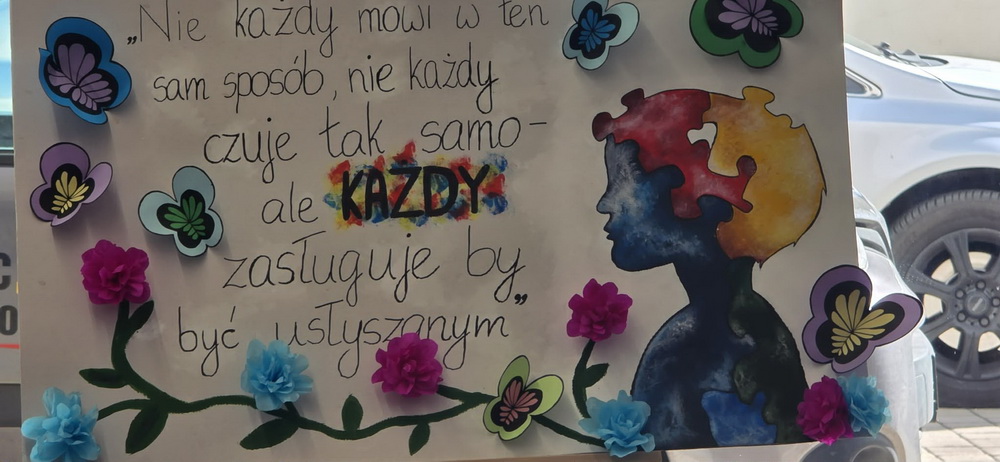 „Nie każdy mówi w ten
sam sposób, nie każdy
czuje tak samo-
ale KAŻDY
zasługuje by
być usłyszanym"